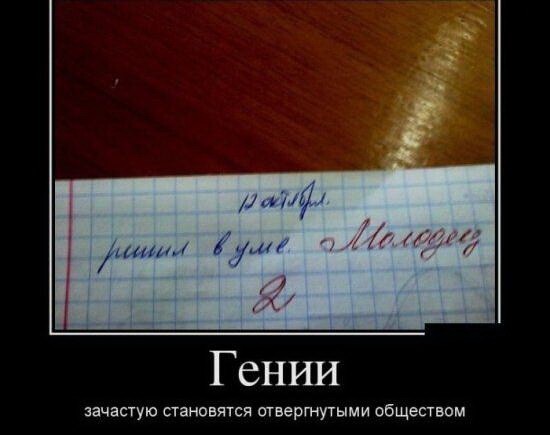 12 октября.
решил в уме. Молодец
2
Гении
зачастую становятся отвергнутыми обществом